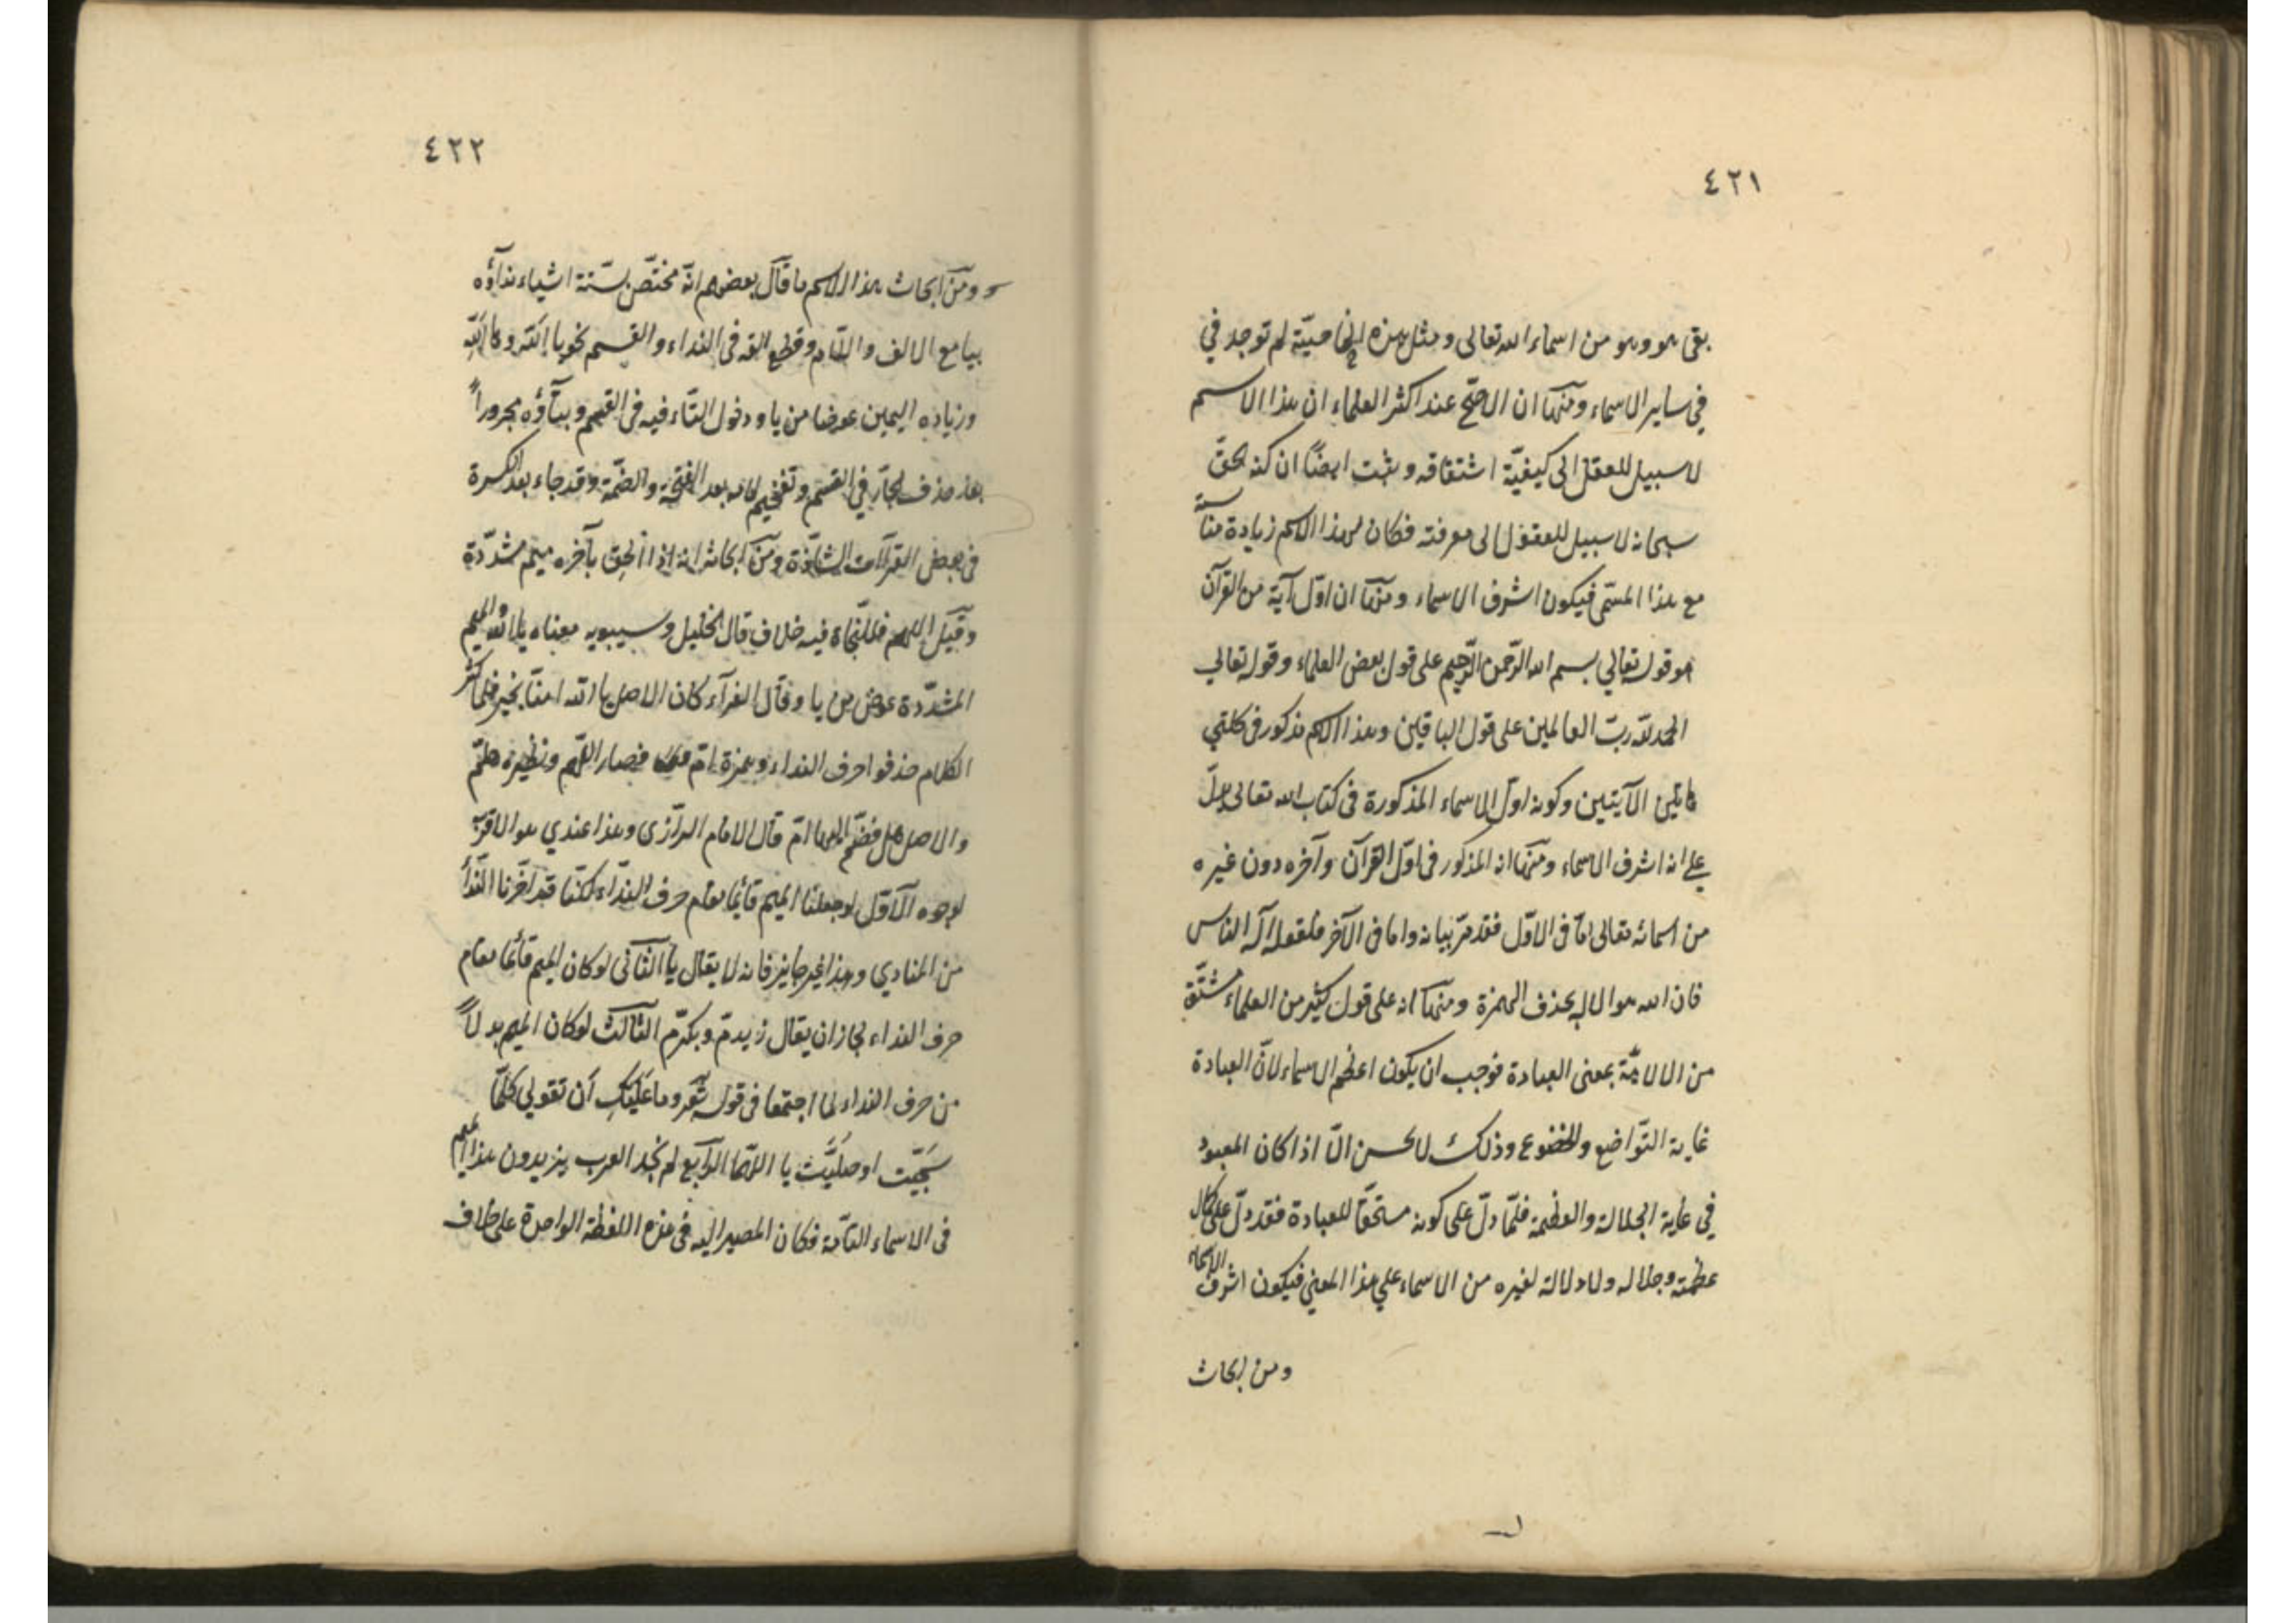 ٤٢١
بقى هو وهو من اسماء الله تعالى ومثل هذه الخاصيّة لم توجد في
في ساير الاسماء ومنها ان الاصحّ عند اكثر العلماء ان هذا الاسم
لا سبيل للعقل الى كيفيّة اشتقاقه وثبت ايضًا ان كنه الحقّ
سبحانه لا سبيل للعقول الى معرفته فكان لهذا الاسم زيادة مناسبة
مع هذا المسمّى فيكون اشرف الاسماء ومنها ان اوّل آية من القرآن
هو قوله تعالي بسم الله الرّحمن الرّحيم على قول بعض العلماء وقوله تعالي
الحمد لله ربّ العالمين على قول الباقين وهذا الاسم مذكور فى كلتي
هاتين الآيتين وكونه اوّل الاسماء المذكورة فى كتاب الله تعالى يدلّ
علي انه اشرف الاسماء ومنها انه المذكور فى اوّل القرآن وآخره دون غيره
من اسمائه تعالى امّا فى الاوّل فقد مرّ بيانه واما فى الآخر فلقوله اله الناس
فان الله هو الاله بحذف الهمزة ومنها انه على قول كثير من العلماء مشتقّ
من الالاهيّة بمعنى العبادة فوجب ان يكون اعظم الاسماء لانّ العبادة
غاية التّواضع والخضوع وذلك لا يحسن الّا اذا كان المعبود
في غاية الجلالة والعظمة فلمّا دلّ على كونه مستحقّا للعبادة فقد دلّ على كمال
عظمته وجلاله ولا دلالة لغيره من الاسماء علي هذا المعني فيكون اشرف الاسماء
ومن ابحاث
٤٢٢
ومن ابحاث هذا الاسم ما قال بعضهم انّه مختصّ بستّة اشياء نداؤه
بيا مع الالف واللّام وقطع الفه فى النداء والقسم نحو يا الله وها الله
وزياده الميمين عوضا من يا ودخول التّاء فيه فى القسم وبقاؤه مجروراً
بعد حذف الجارّ في القسم وتفخيم لامه بعد الفتحة والضّمّة وقد جاء بعد الكسرة
فى بعض القرآات الشاذّة ومن ابحاثه انه اذا الحق بآخره ميم مشدّدة
وقيل اللهم فللنّحاة فيه خلاف قال الخليل وسيبويه معناه يا الله والميم
المشدّدة عوض من يا وقال الفرآء كان الاصل يا الله امنّا بخير فلما كثر
الكلام حذفوا حرف النداء وهمزة امّ فصار اللهم ونظيره هلمّ
والاصل هل فضمّ اليها امّ قال الامام الرّازى وهذا عندي هو الاقرب
لوجوه الاوّل لو جعلنا الميم قائما مقام حرف النّداء لكنّا قد اخّرنا النّداء
من المنادي وهذا غير جايز فانه لا يقال الثّانى لو كان الميم قائما مقام
حرف النداء لجاز ان يقال زيدمّ وبكرمّ الثّالث لو كان الميم بدلاً
من حرف النداء لما اجتمعا فى قوله شعر وما عَلَيكِ اَن تقولي كلّما
سَبّحت او صلّيت يا اللّهمّا الرّابع لم نجد العرب يزيدون هذا الميم
فى الاسماء التامّة فكان المصير اليه فى هذه اللفظة الواحدة على خلاف